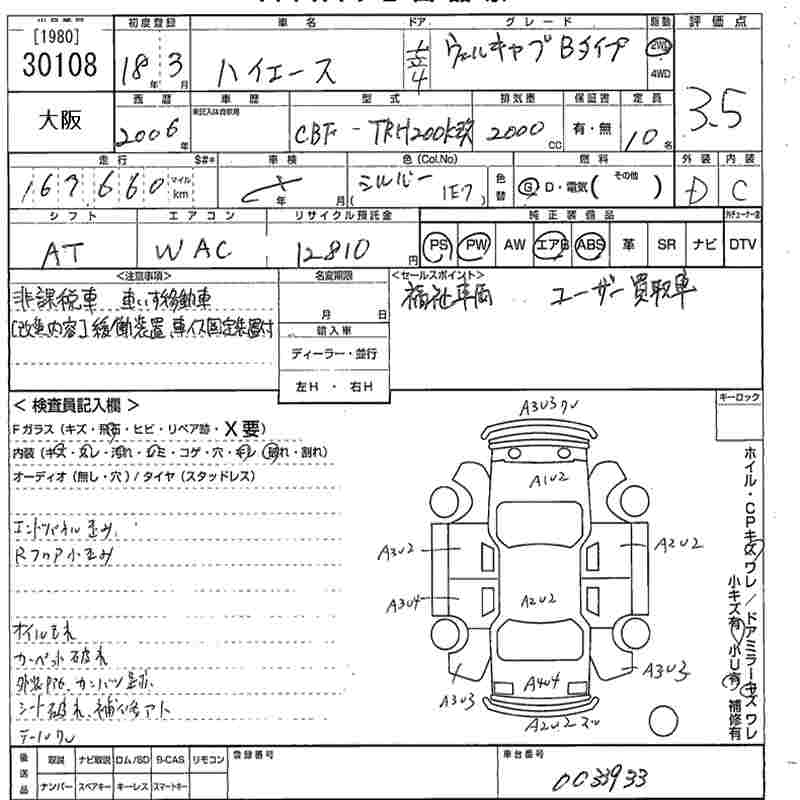 [1980]
30108
初度登録
車名
ドア
グレード
駆動
評価点
18年 3月
ハイエース
4
ウェルキャブ Bタイプ
2WD
4WD
3.5
大阪
西暦
車歴
型式
排気量
保証書
定員
2006年
CBF - TRH200K改
2000cc
有・無
10名
走行
$#*
車検
色(Col.No)
燃料
外装
内装
167,660
マイル
km
年
月
シルバー
1E7
色替
G D・電気( その他 )
D
C
シフト
エアコン
リサイクル預託金
純正装備品
AT
WAC
12810円
PS PW AW エアB ABS 革 SR ナビ DTV
<注意事項>
名変期限
<セールスポイント>
非課税車 車いす移動車
月 日
福祉車両 ユーザー買取車
[改造内容]緩衝装置,車イス固定装置付
輸入車
ディーラー・並行
左H・右H
<検査員記入欄>
キーロック
Fガラス(キズ・飛石・ヒビ・リペア跡・X要)
内装(キズ・ヨレ・汚れ・シミ・コゲ・穴・キレ・破れ・割れ)
オーディオ(無し・穴)/タイヤ(スタッドレス)
エンドパネル歪み
Rフロア小歪み
オイルもれ
カーペット破れ
シート破れ、補修アト
テールワレ
A3U3ワレ
A1U2
A3U2
A2U2
A3U4
A2U2
A3U3
A4U4
A3U3
A2U2
ホイル・CPキズワレ/ドアミラーキズワレ
小キズ有 小U有 補修有
後送品
取説 ナビ取説 ロム/SD B-CAS リモコン
ナンバー スペアキー キーレス スマートキー
登録番号
車台番号
0033933